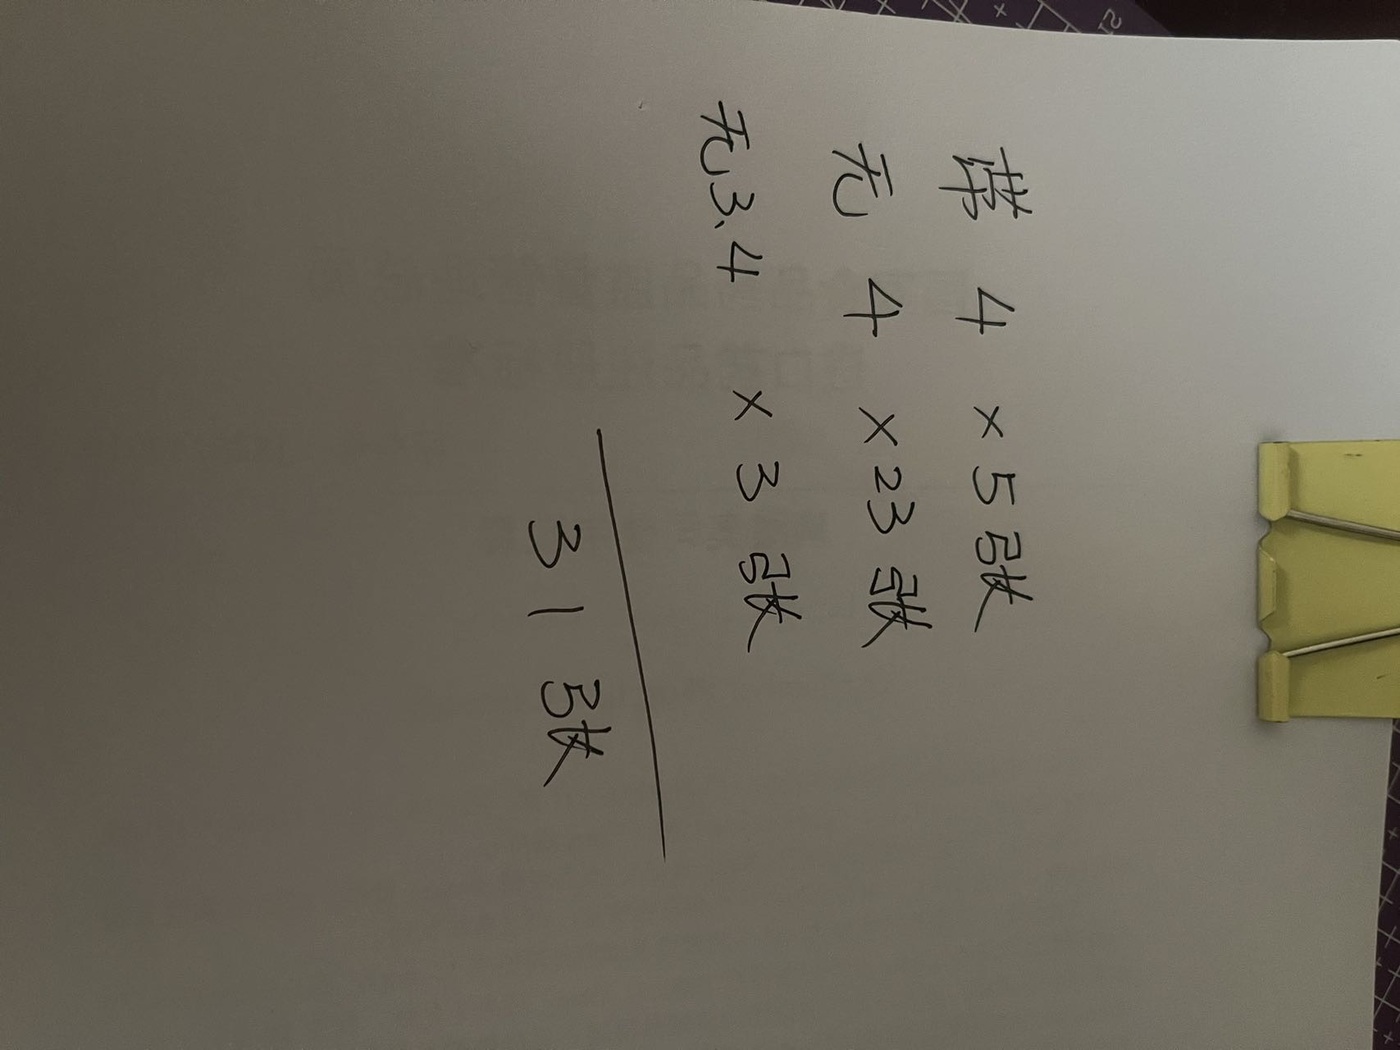 带 4 × 5 张
无 4 × 23 张
无 3、4 × 3 张
31 张